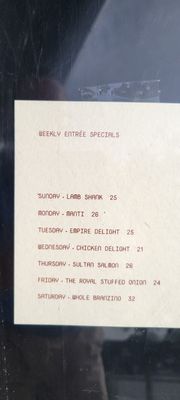 WEEKLY ENTRÉE SPECIALS
SUNDAY - LAMB SHANK 25
MONDAY - MANTI 26
TUESDAY - EMPIRE DELIGHT 25
WEDNESDAY - CHICKEN DELIGHT 21
THURSDAY - SULTAN SALMON 26
FRIDAY - THE ROYAL STUFFED ONION 24
SATURDAY - WHOLE BRANZINO 32